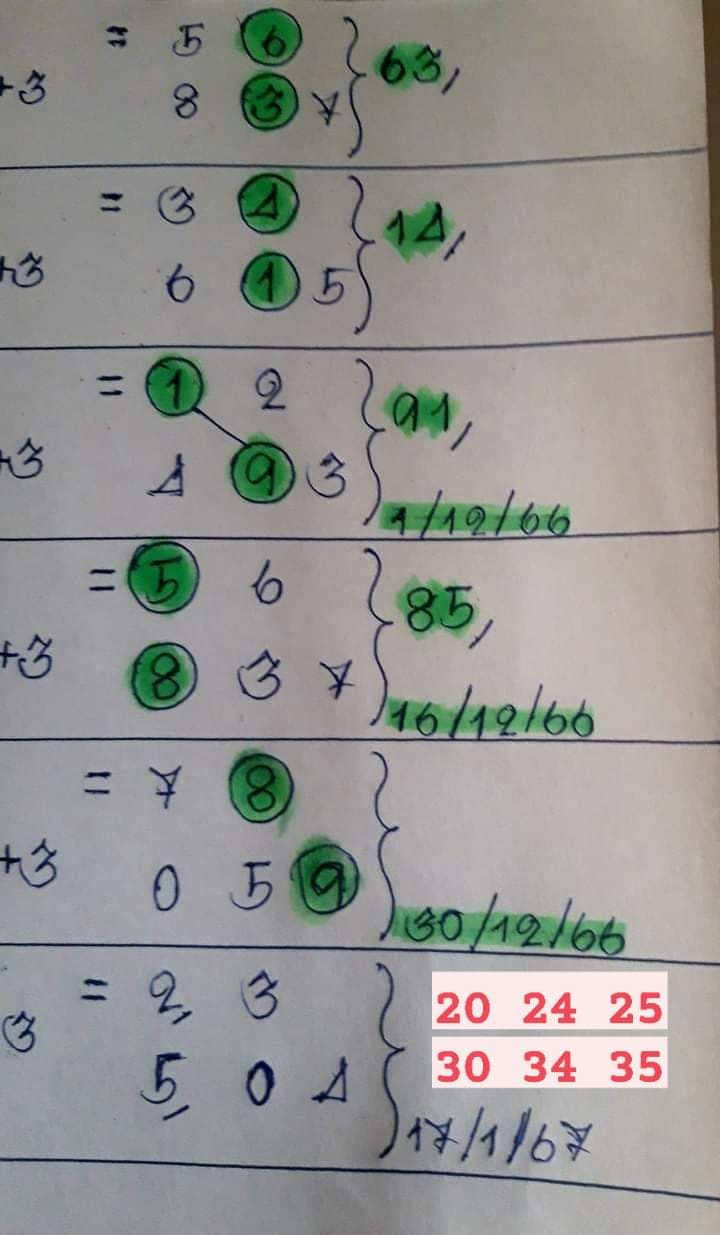 = 5 6 63,
+3 8 3 7
= 3 4 14,
+3 6 1 5
= 1 2 91,
+3 4 9 3
1/12/66
= 5 6 85,
+3 8 3 7
16/12/66
= 7 8
+3 0 5 9
30/12/66
= 2, 3 20 24 25
3 5, 0 4 30 34 35
17/1/67